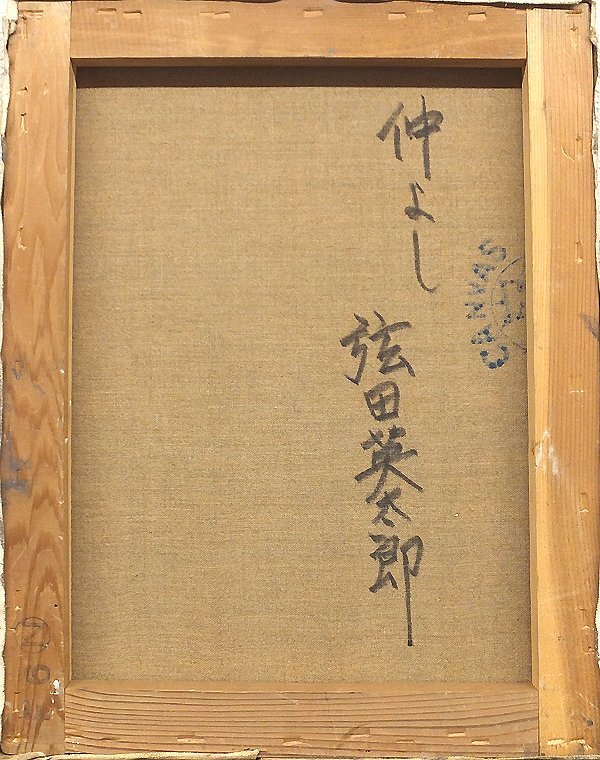 仲よし
弦田英太郎
CANVAS